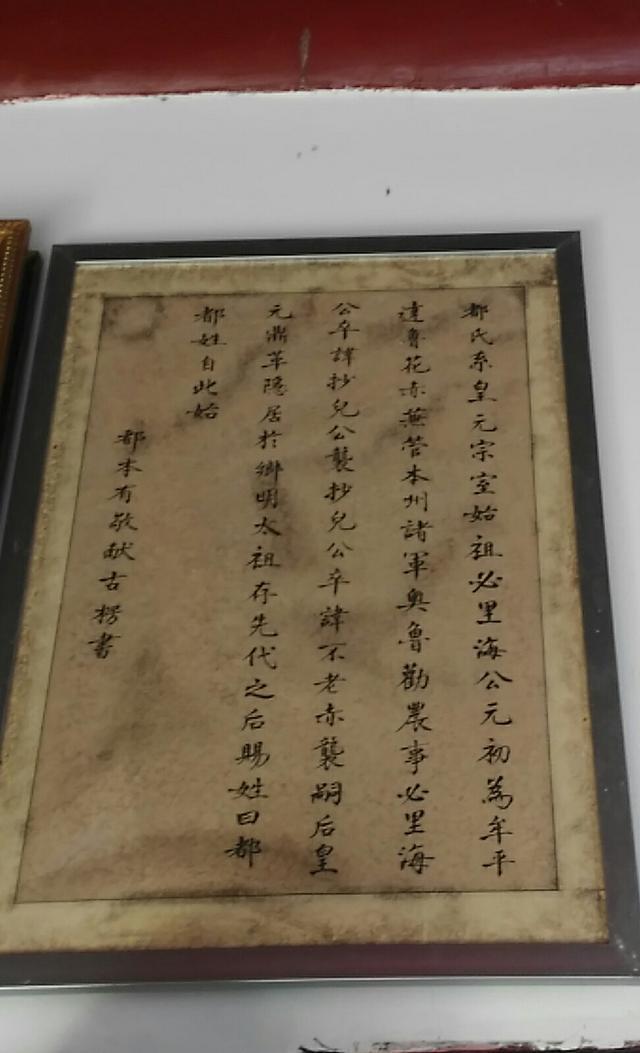 都氏系皇元宗室始祖必里海公元初為牟平
達魯花赤蕪管本州諸軍奥魯勸農事必里海
公卒諱抄兒公襲抄兒公卒諱不老赤襲嗣后皇
元鼎革隱居於鄉明太祖存先代之后賜姓曰都
都姓自此始
都本有敬献古楞書